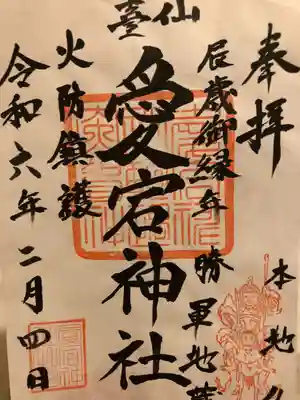 仙臺
奉拝
辰歳御縁年
勝軍地
本地
愛宕神社
火防鎮護
令和六年二月四日